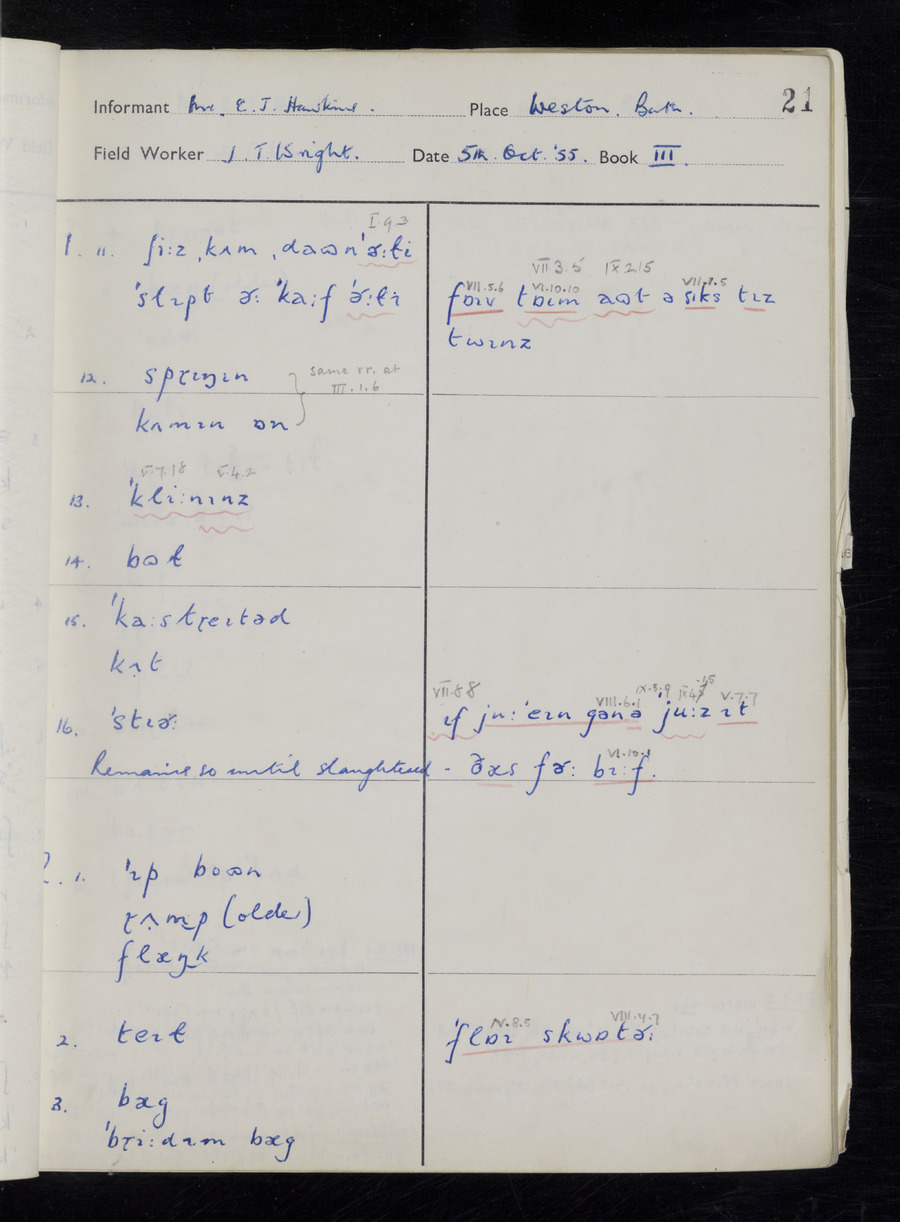 Informant Mr. E. T. Hawkins. Place Weston, Bath. 21
Field Worker J. T. Wright. Date 5th. Oct. '55. Book III.
I 9 3
11. ʃi:z ˌkʌm ˌdaʊn ˈɚ:ɫi
ˈslɪpt ɚ: ˈka:f ˈɚ:ɫɪ
VII 3.5 IX 2 15
VII.5.6 VI.10.10 VII.2.5
fɒɪv tɒɪm aʊt ə sɪks tɪz
twɪnz
12. spɽɪŋɪn
kʌmɪn ɒn
same rr. at
III.1.6
V.7.18 V.4.2
13. ˈkli:nɪnz
14. bʊɫ
15. ˈka:stɽeɪtəd
kʌt
16. ˈstɪɚ:
VII 8 8 VIII.6.1 IX.5.9 V.7.7
ɪf ju:ˈeɪn gənə ˈju:z ɪt
Remains so until slaughtered - ðæs fɚ: bi:f.
VI.10.1
1. ˈɪp boʊn
ɽʌmp (older)
flæŋk
2. teɪɫ
V.8.5 VIII.4.7
ˈflɒɪ skwɒtɚ:
3. bæg
ˈbɽi:dɪm bæg